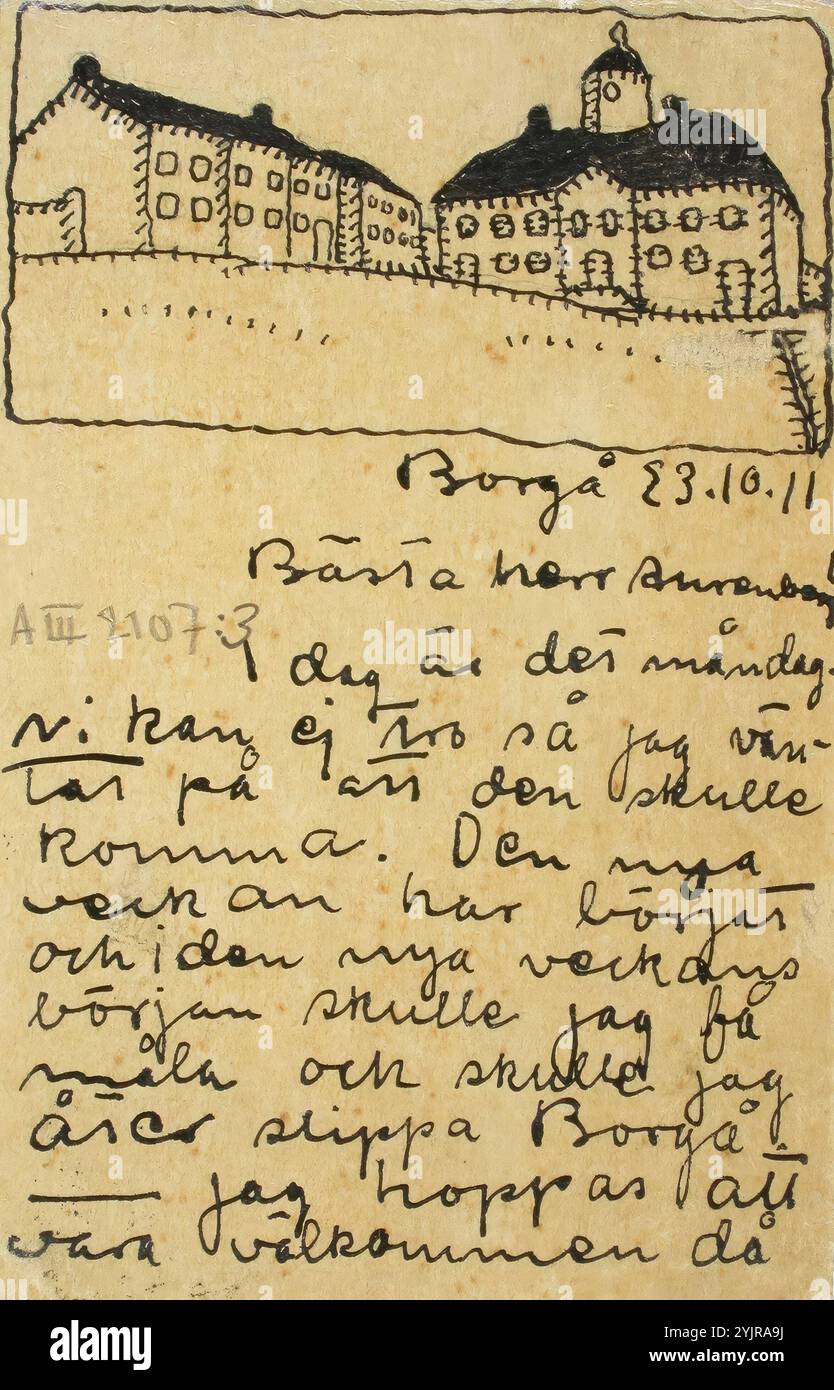 Borgå 23.10.11
Bästa herr Ahrenberg!
A III 2107:3
I dag är det måndag.
vi kan ej tro så jag vän-
tat på att den skulle
komma. Den nya
veckan har börjat
och i den nya veckans
början skulle jag få
måla och skulle jag
åter slippa Borgå.
— jag hoppas att
vara välkommen då
alamy
Image ID: 2YJRA9J
www.alamy.com